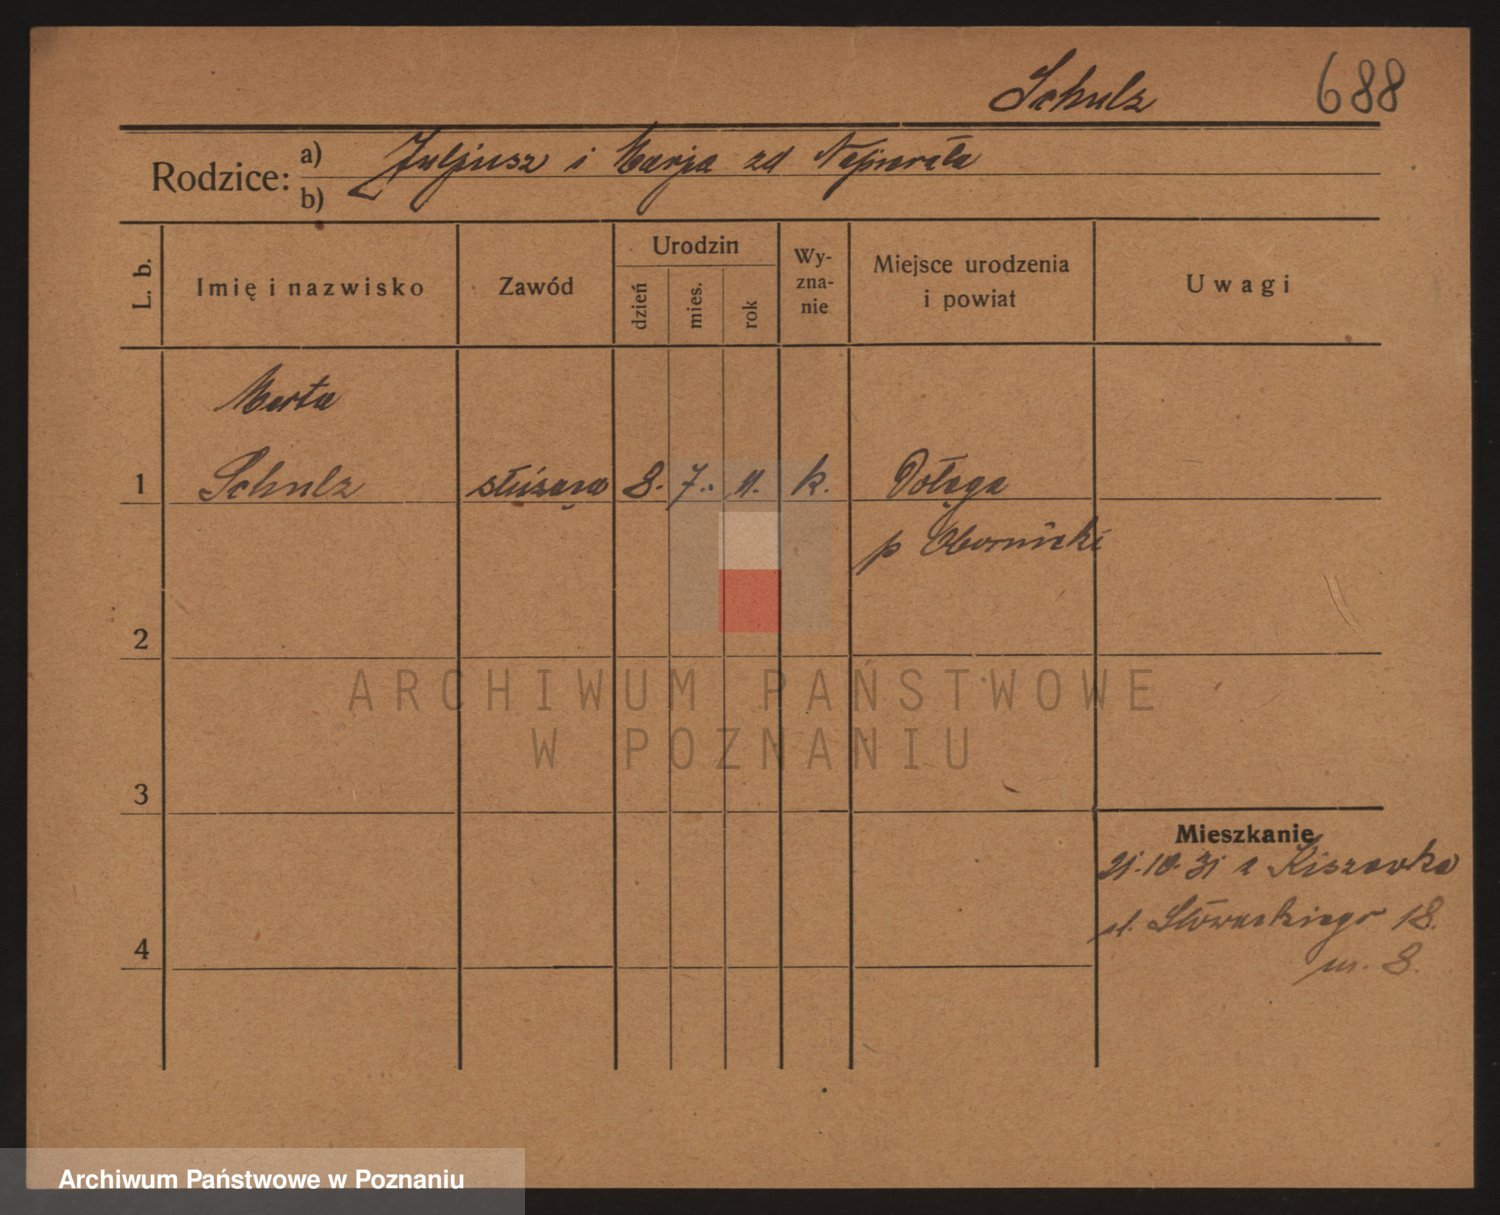 Schulz 688
Rodzice: a) Juljusz i Marja zd Napierała
b)
L. b. Imię i nazwisko Zawód Urodzin dzień mies. rok Wyznanie Miejsce urodzenia i powiat Uwagi
Marta
1 Schulz służąca 8. 7. 11. k. Dołęga
p Obornicki
2
ARCHIWUM PAŃSTWOWE
W POZNANIU
3
Mieszkanie
21.10.31 z Kiszewka
ul. Słowackiego 18.
4 m. 8.
Archiwum Państwowe w Poznaniu